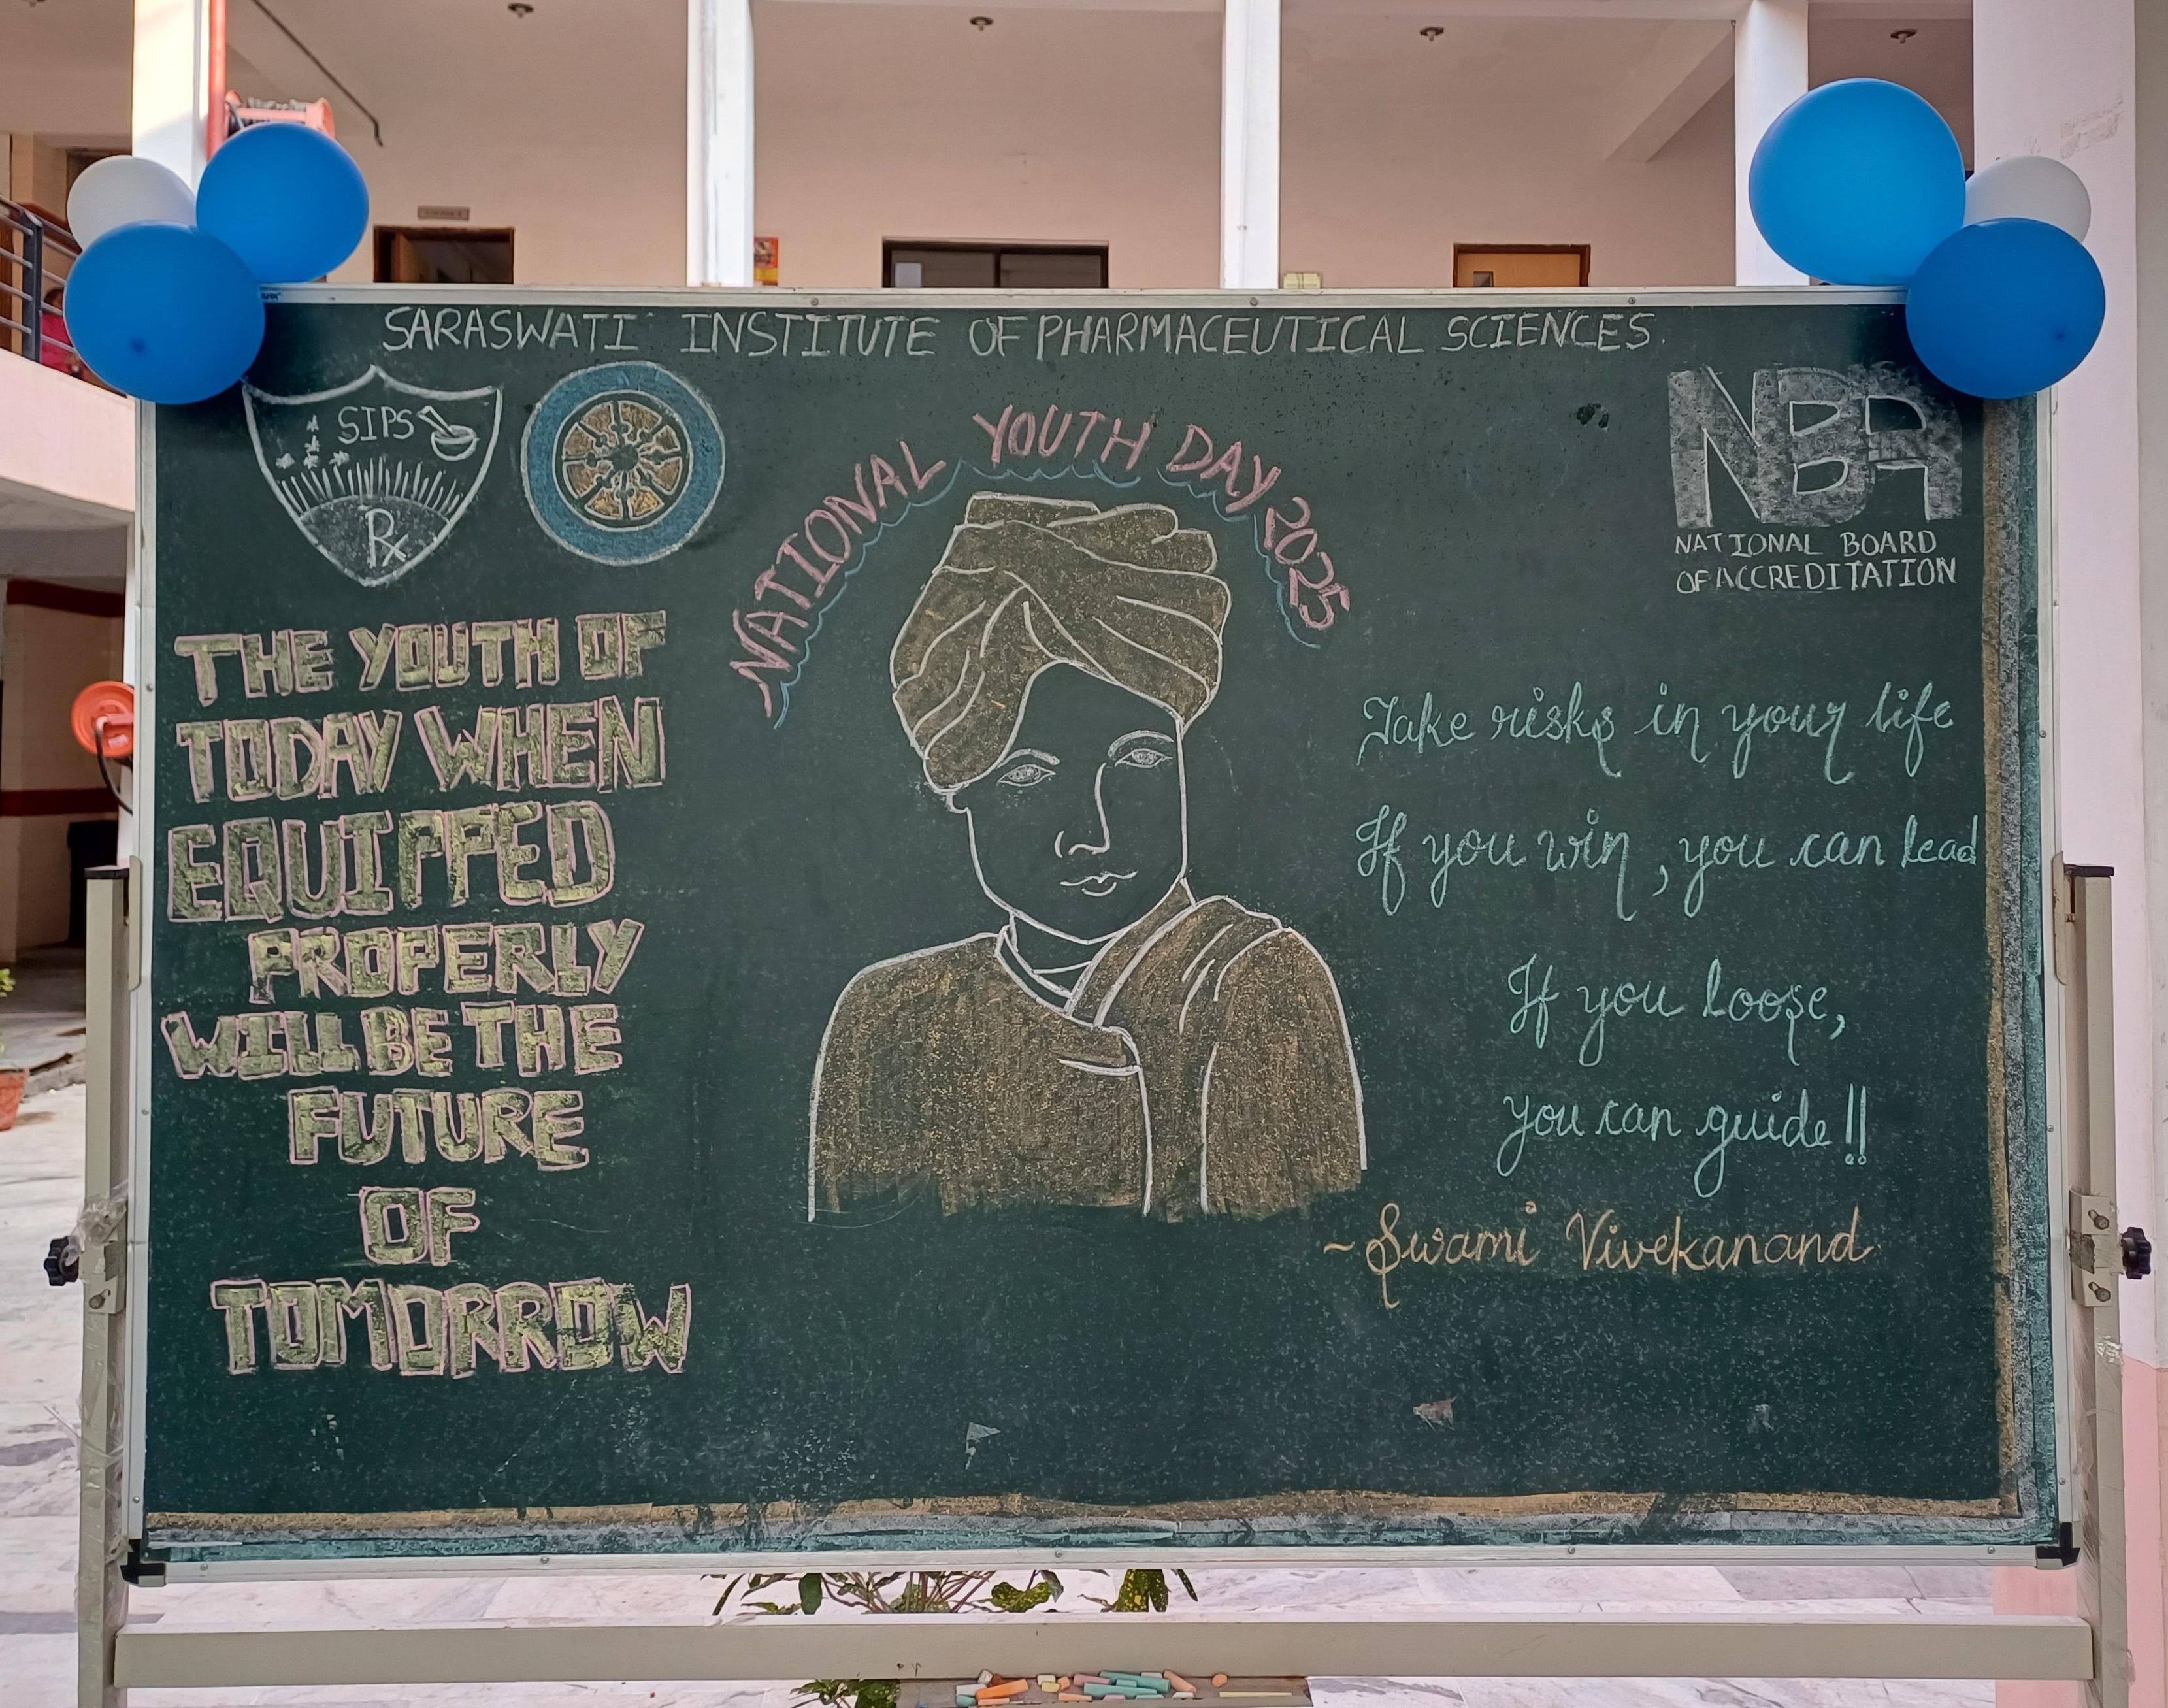 SARASWATI INSTITUTE OF PHARMACEUTICAL SCIENCES.
SIPS
Rx
NBA
NATIONAL BOARD
OF ACCREDITATION
NATIONAL YOUTH DAY 2025
THE YOUTH OF
TODAY WHEN
EQUIPPED
PROPERLY
WILL BE THE
FUTURE
OF
TOMORROW
Take risks in your life
If you win, you can lead
If you loose,
you can guide!!
~ Swami Vivekanand